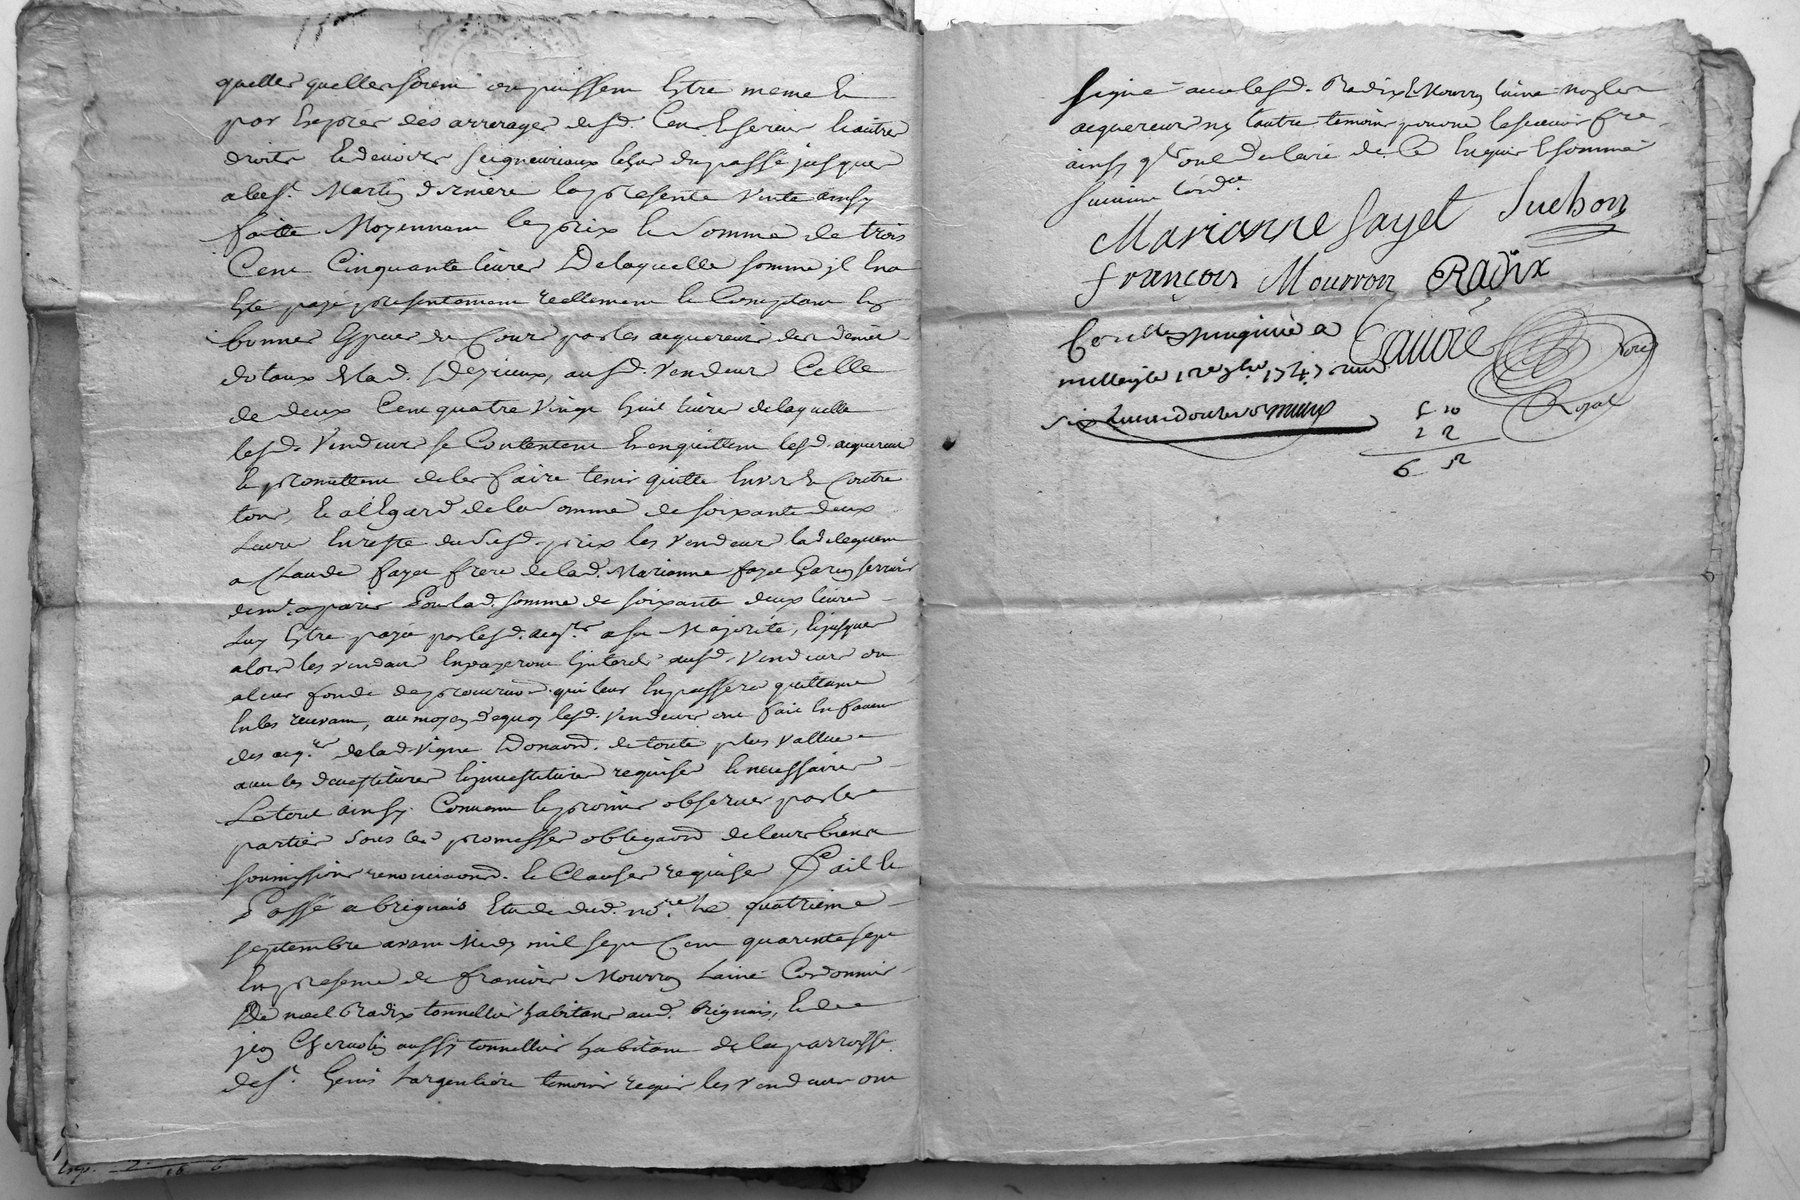 quelles quelles soient ou puissent Estre meme Et
par Exprès des arrerages desd. Cens & servis Et autres
droits Et devoirs seigneuriaux Echus du passé jusques
a la St. Martin derniere la presente vente ainsy
faitte Moyennant le prix Et somme de trois
Cent Cinquante livres De laquelle somme il En a
Eté payé presentement reellement Et Comptant En
bonnes Especes de Cours par les acquereurs des deniers
dotaux de lad. auxd. vendeurs Celle
de deux Cent quatre vingt huit livres de laquelle
lesd. vendeurs se Contentent En quittent lesd. acquereurs
Et promettent de les faire tenir quitte Envers Et Contre
tous, Et a l'Egard de la somme de soixante deux
livres En reste du susd. prix les vendeurs la deleguent
a Claude fayet frere de lad. Marianne fayet Garçon
a paris Pour lad. somme de soixante deux livres
Luy Estre payée par lesd. acqrs. a sa Majorité, Et jusques
alors les En payeront Interets auxd. vendeurs ou
a leur fondé de procuraon. qui leur En passera quittance
En les recevant, au moyen de quoy lesd. vendeurs ont fait En faveur
des acqrs. de lad. vigne Donaon. de toute plus vallue
avec les devestitures Et investitures requises Et necessaires
Le tout ainsy Convenu Et promis observer par les
parties sous les promesses obligaons. de leurs biens
soumissions renonciaons. Et Clauses requises fait Et
Passé a brignais Etude dud. nore. Le quatrieme
septembre avant Midy mil sept Cent quarente sept
En presence de francois Mourron Laine Cordonnier
De noel Radix tonnellier habitans aud. brignais, Et de
jean aussy tonnellier habitant de la parroisse
de St. Genis Largentiere temoins requis les vendeurs ont
signé avec lesd. Radix & Mourron laine non les
acquereurs ny l'autre temoin pour ne le scavoir fre.
ainsy qls. ont declaré de ce Enquis & sommés
suivant lordce.
Marianne fayet Suchon
françois Mourron Radix
Controllé a
1747
Nore.
Royal
5 10
1 2
6 12